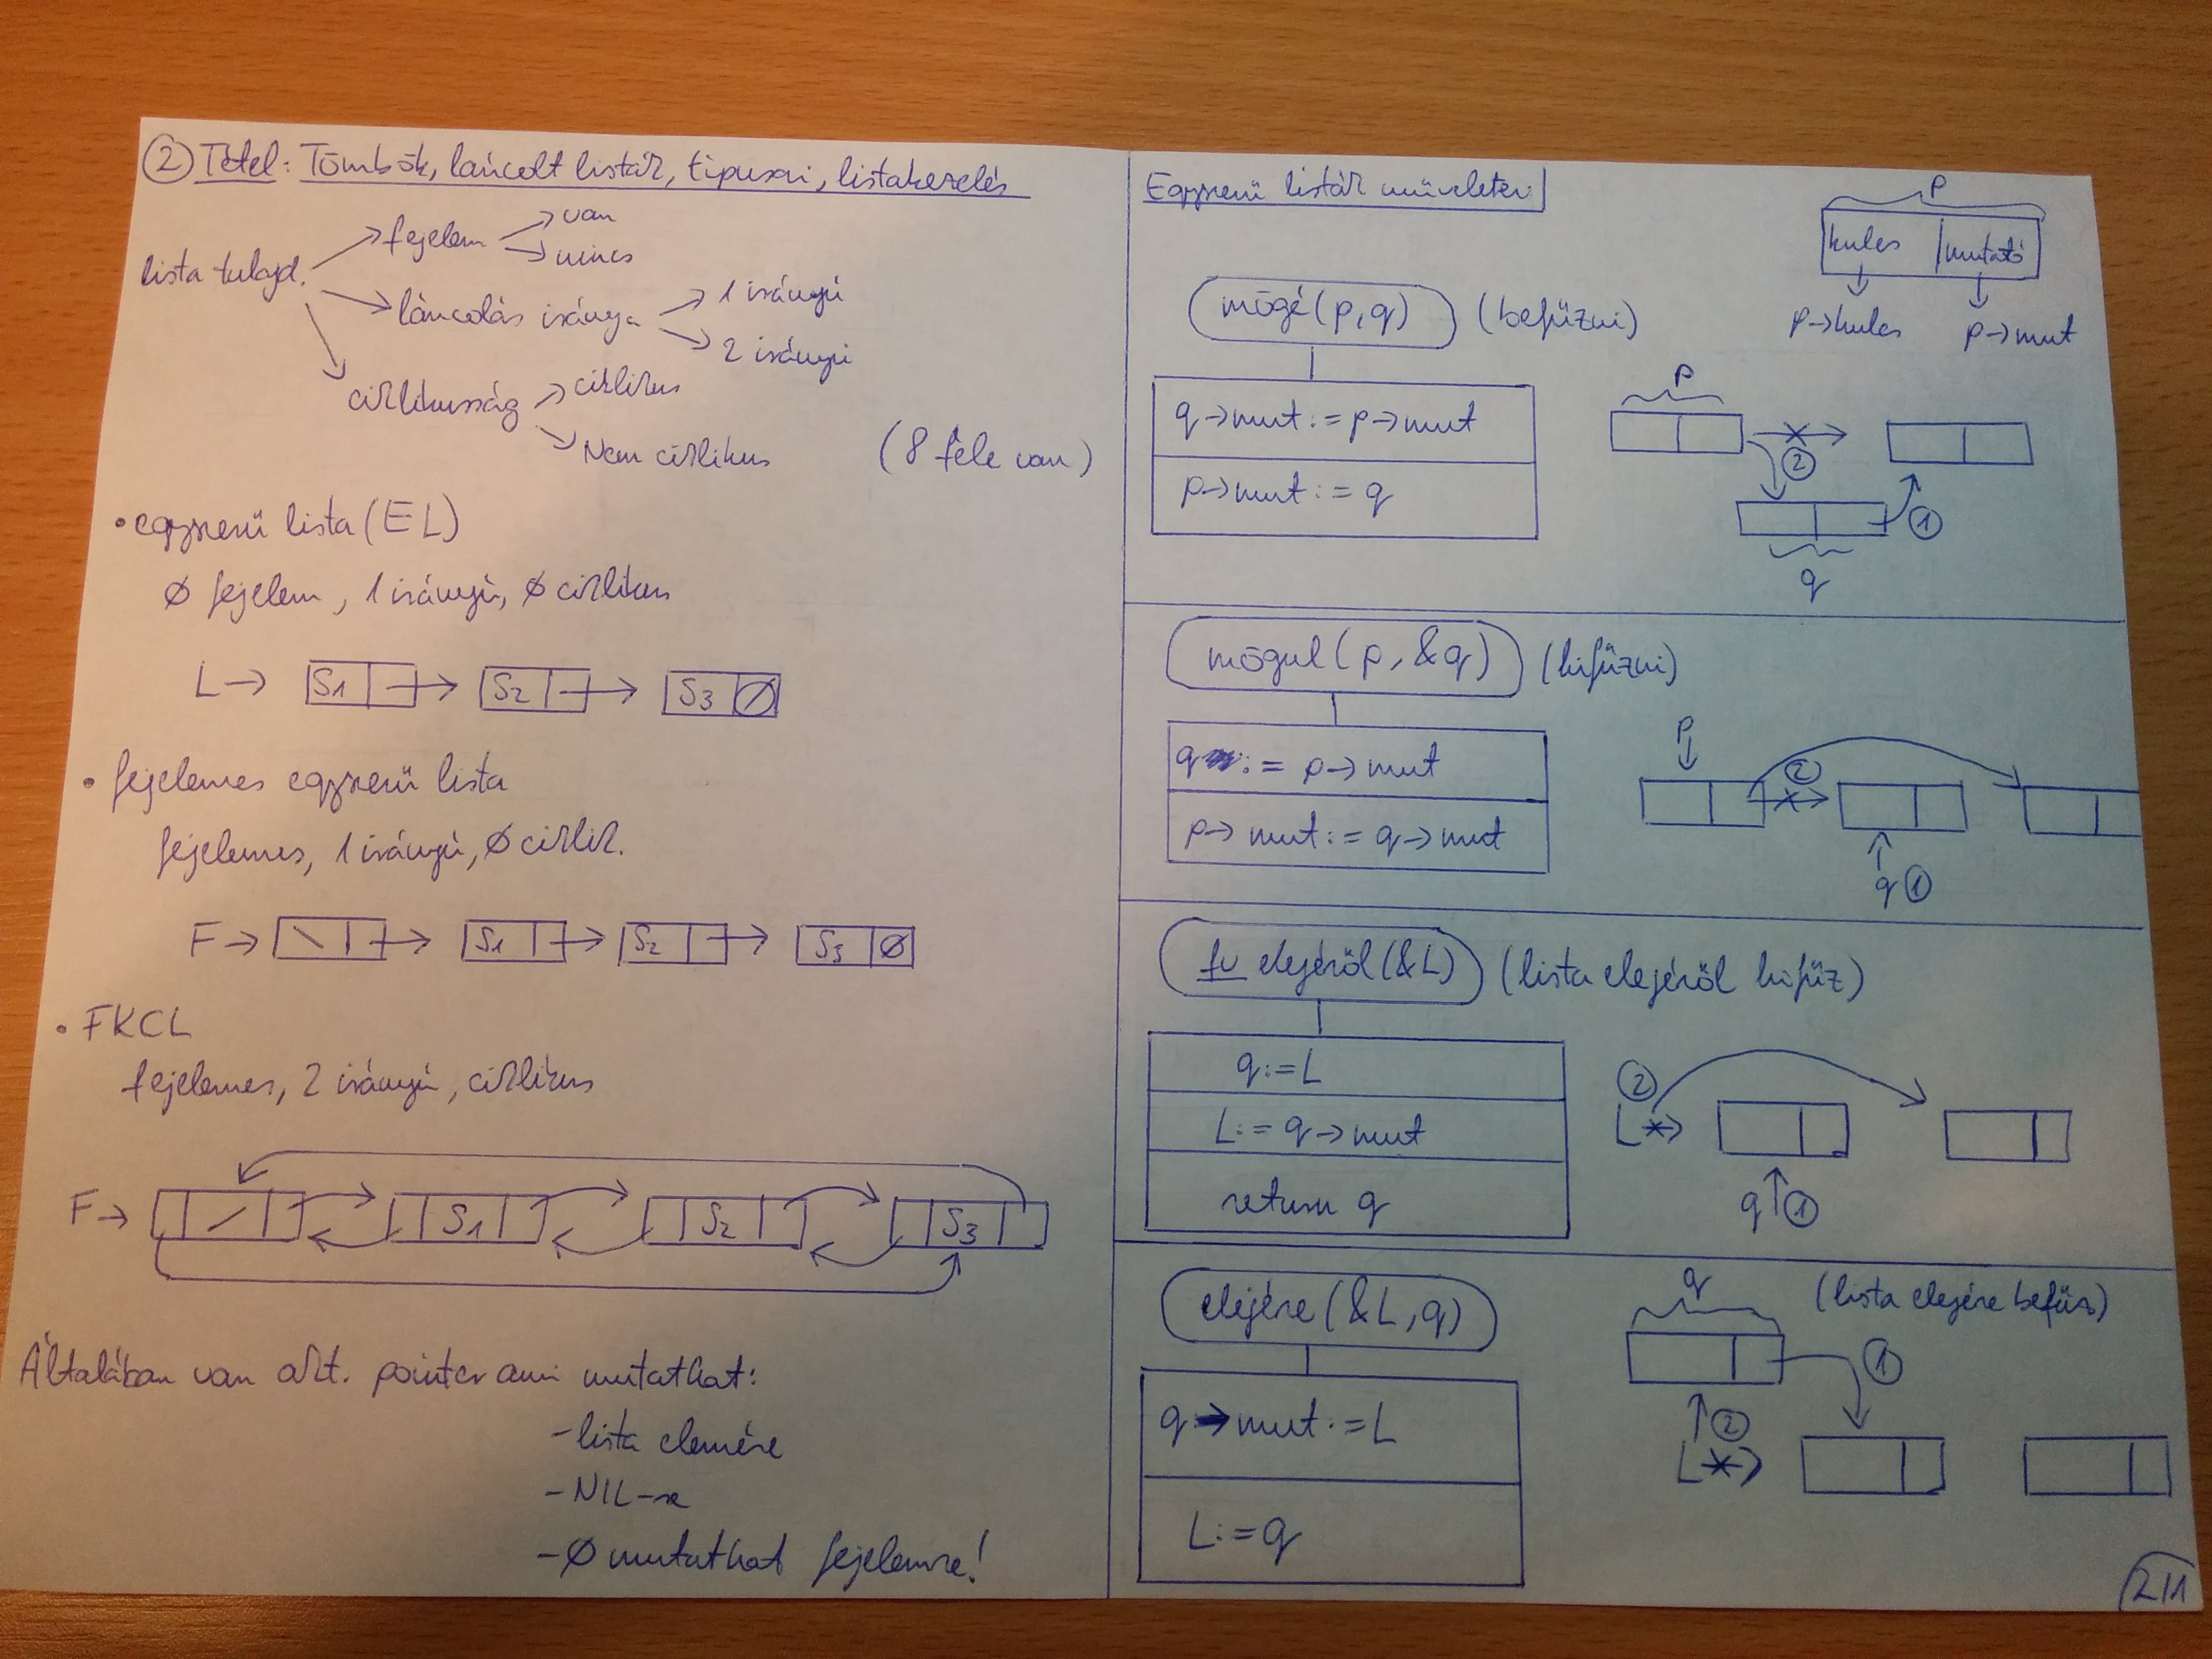 ② Tétel: Tömbök, láncolt listák, típusai, listakezelés
lista tulajd.
fejelem
van
nincs
láncolás iránya
1 irányú
2 irányú
ciklikusság
ciklikus
Nem ciklikus
(8 féle van)
• egyszerű lista (EL)
Ø fejelem, 1 irányú, Ø ciklikus
L→ S1 → S2 → S3 Ø
• fejelemes egyszerű lista
fejelemes, 1 irányú, Ø ciklik.
F→ → S1 → S2 → S3 Ø
• FKCL
fejelemes, 2 irányú, ciklikus
F→ S1 S2 S3
Általában van akt. pointer ami mutathat:
- lista elemére
- NIL-re
- Ø mutathat fejelemre!
Egyszerű listák műveletei:
p
kulcs mutató
p→kulcs p→mut
mögé(p,q) (befűzni)
q→mut:=p→mut
p→mut:=q
p
②
①
q
mögül(p,&q) (kifűzni)
q:=p→mut
p→mut:=q→mut
p
②
q ①
fv elejéről(&L) (lista elejéről kifűz)
q:=L
L:=q→mut
return q
②
L
q ①
elejére(&L,q) (lista elejére befűz)
q→mut:=L
L:=q
q
①
②
L
2/1